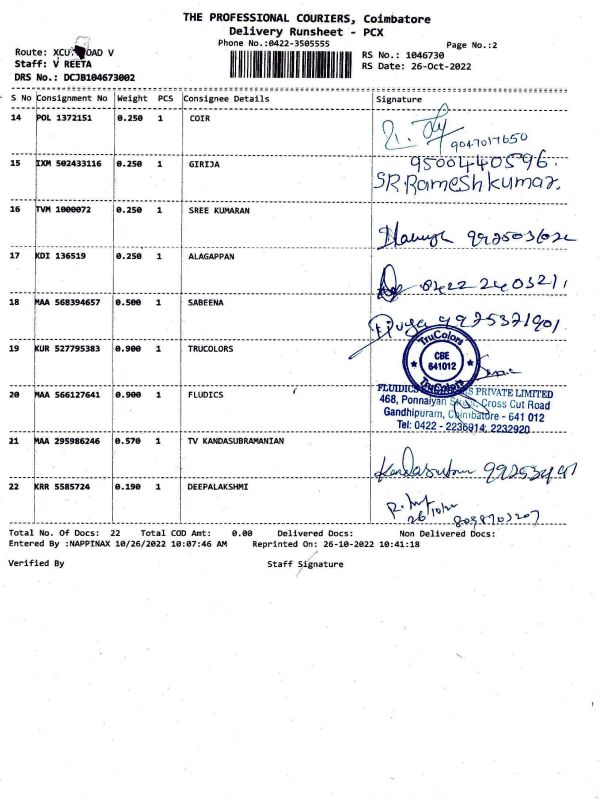 THE PROFESSIONAL COURIERS, Coimbatore
Delivery Runsheet - PCX
Phone No.:0422-3505555
Page No.:2
Route: ROAD V
RS No.: 1046730
Staff: V REETA
RS Date: 26-Oct-2022
DRS No.: DCJB104673002
S No Consignment No Weight PCS Consignee Details Signature
14 POL 1372151 0.250 1 COIR
9047017650
15 IXM 502433116 0.250 1 GIRIJA 9500440596
SR.Rameshkumar.
16 TVM 1000072 0.250 1 SREE KUMARAN
17 KDI 136519 0.250 1 ALAGAPPAN
0422 2403211
18 MAA 568394657 0.500 1 SABEENA
9925321901
19 KUR 527795383 0.900 1 TRUCOLORS
TruColors
CBE
641012
TruColors
20 MAA 566127641 0.900 1 FLUDICS
FLUIDICS PRIVATE LIMITED
468, Ponnaiyan Street, Cross Cut Road
Gandhipuram, Coimbatore - 641 012
Tel: 0422 - 2236914, 2232920
21 MAA 295986246 0.570 1 TV KANDASUBRAMANIAN
22 KRR 5585724 0.190 1 DEEPALAKSHMI
26/10/22
Total No. Of Docs: 22 Total COD Amt: 0.00 Delivered Docs: Non Delivered Docs:
Entered By :NAPPINAX 10/26/2022 10:07:46 AM Reprinted On: 26-10-2022 10:41:18
Verified By Staff Signature